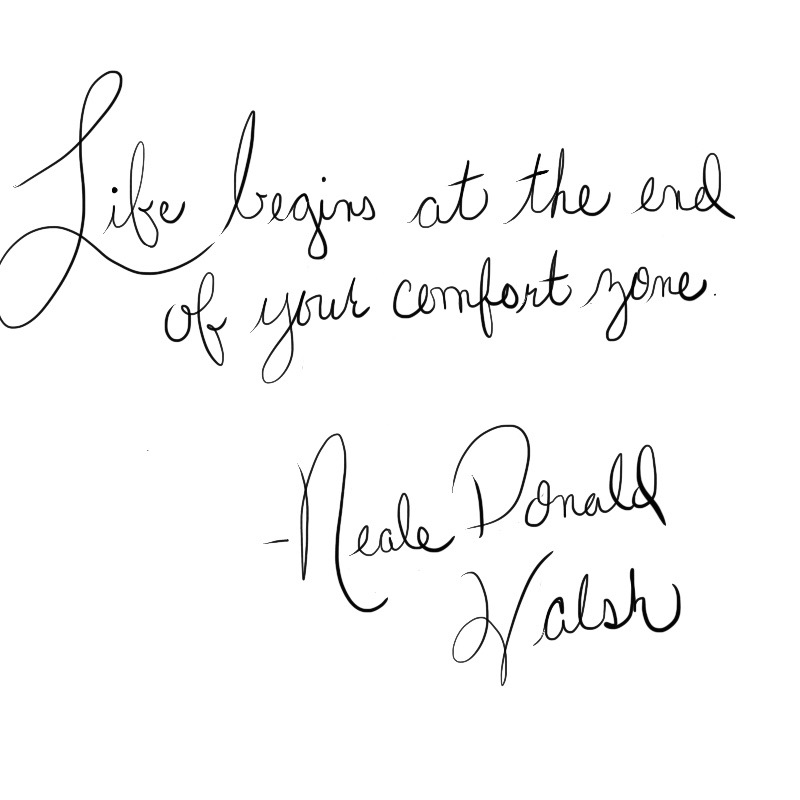 Life begins at the end
of your comfort zone.
-Neale Donald
Walsh